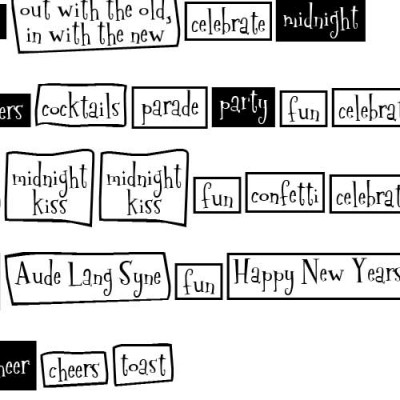 out with the old,
in with the new celebrate midnight
ers cocktails parade party fun celebrat
midnight kiss midnight kiss fun confetti celebrat
Aude Lang Syne fun Happy New Years
heer cheers toast